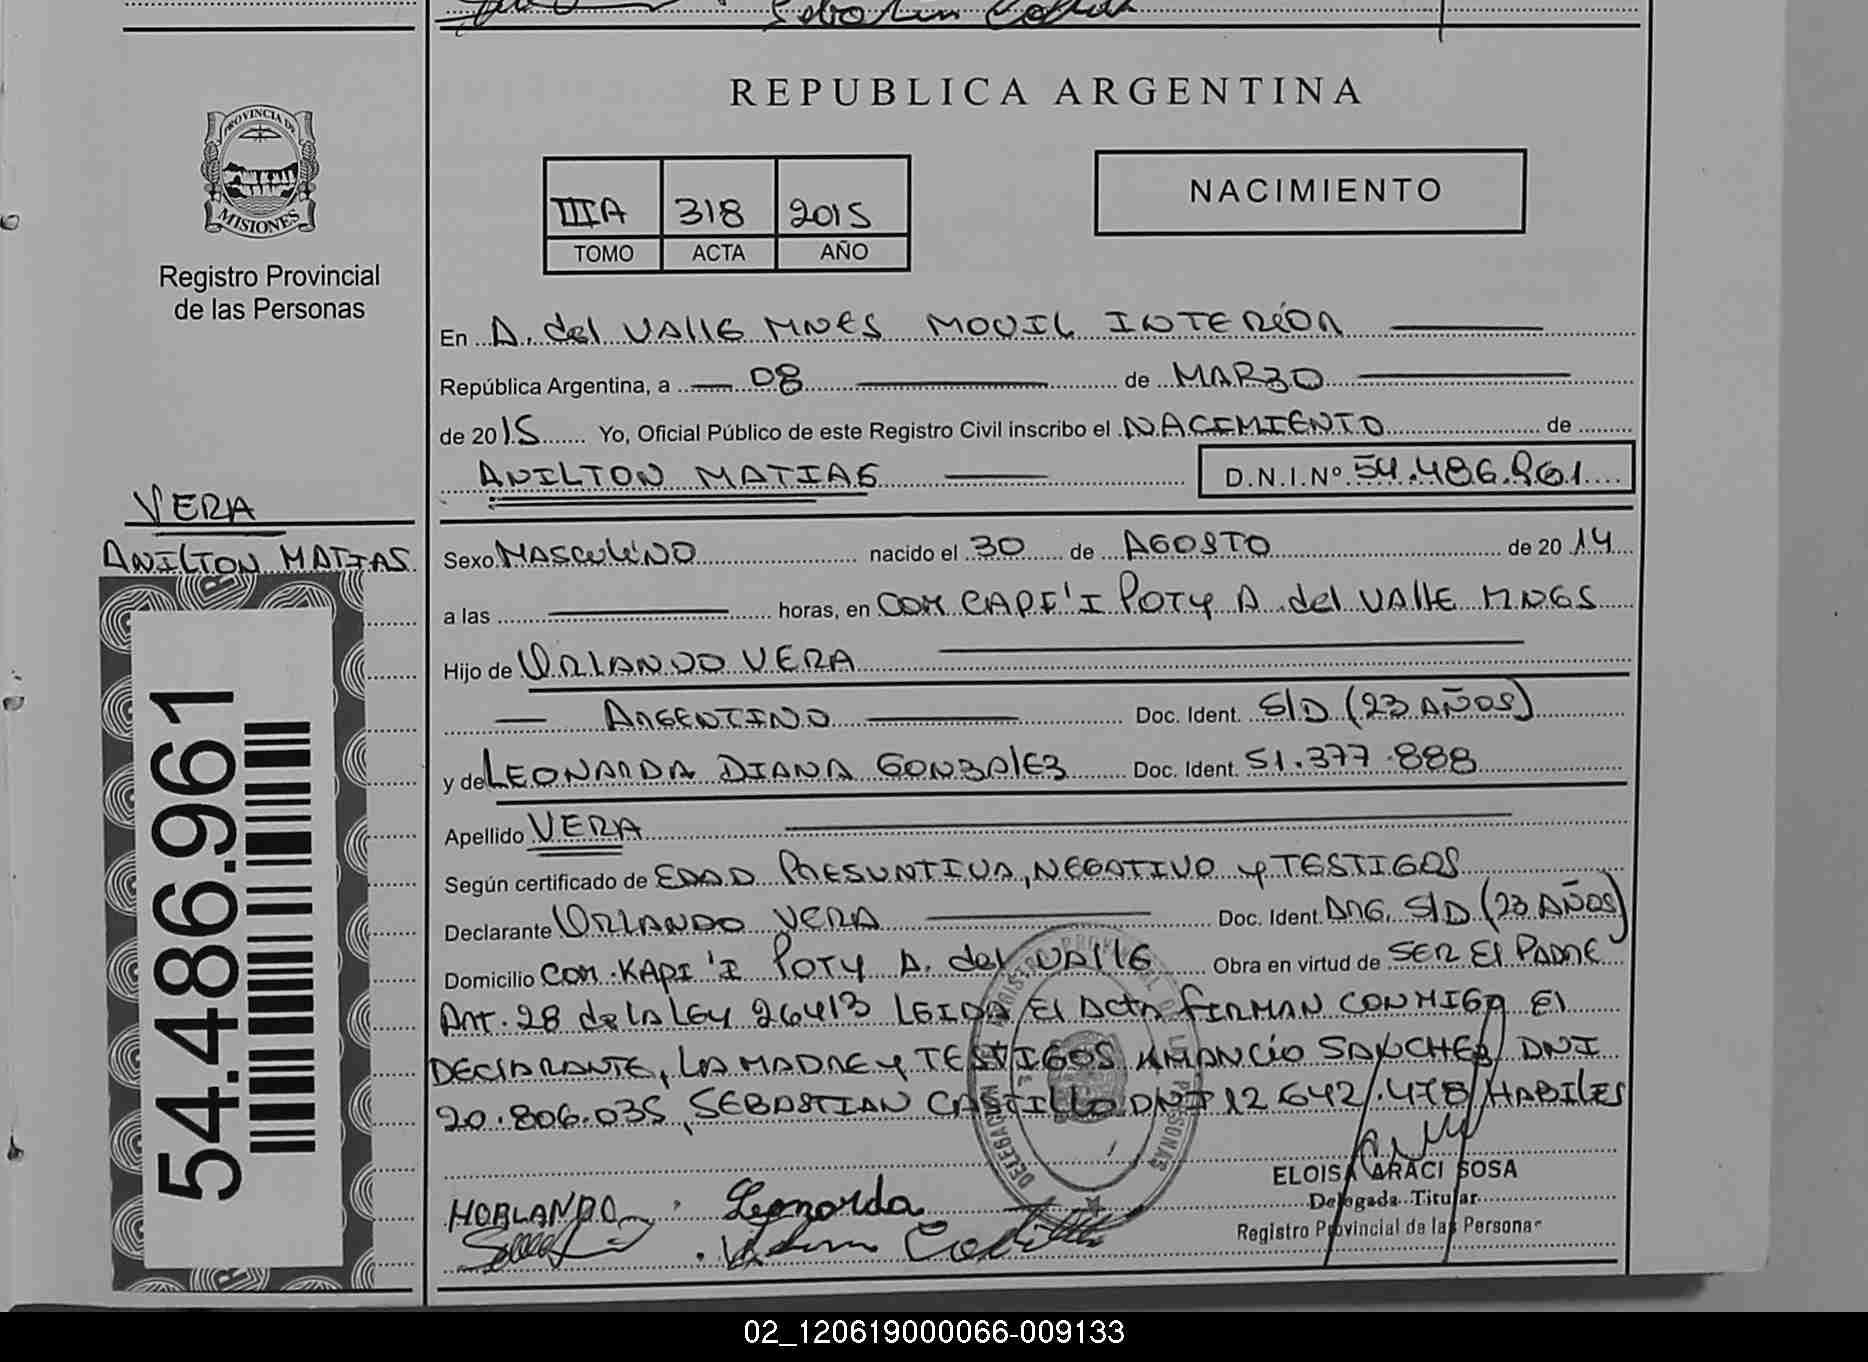 REPUBLICA ARGENTINA
PROVINCIA DE
MISIONES
Registro Provincial
de las Personas
IIIA 318 2015
TOMO ACTA AÑO
NACIMIENTO
En A. del VALLE MNES MOVIL INTERIOR
República Argentina, a 08 de MARZO
de 2015 Yo, Oficial Público de este Registro Civil inscribo el NACIMIENTO de
ANILTON MATIAS D.N.I.Nº 54.486.961
VERA
ANILTON MATIAS
54.486.961
Sexo MASCULINO nacido el 30 de AGOSTO de 2014
a las horas, en COM CAPI'I POTY A. del VALLE MNES
Hijo de ORLANDO VERA
ARGENTINO Doc. Ident. S/D (23 AÑOS)
y de LEONARDA DIANA GONZALEZ Doc. Ident. 51.377.888
Apellido VERA
Según certificado de EDAD PRESUNTIVA, NEGATIVO y TESTIGOS
Declarante ORLANDO VERA Doc. Ident. ARG. S/D (23 AÑOS)
Domicilio COM. KAPI'I POTY A. del VALLE Obra en virtud de SER El PADRE
ART. 28 de la LEY 26413 LEIDA El Acta FIRMAN CONMIGO El
DECLARANTE, LA MADRE y TESTIGOS AMANCIO SANCHEZ DNI
20.806.035, SEBASTIAN CASTILLO DNI 12.642.478 HABILES
HORLANDO Leonarda
ELOISA ARACI SOSA
Delegada Titular
Registro Provincial de las Personas
02_120619000066-009133